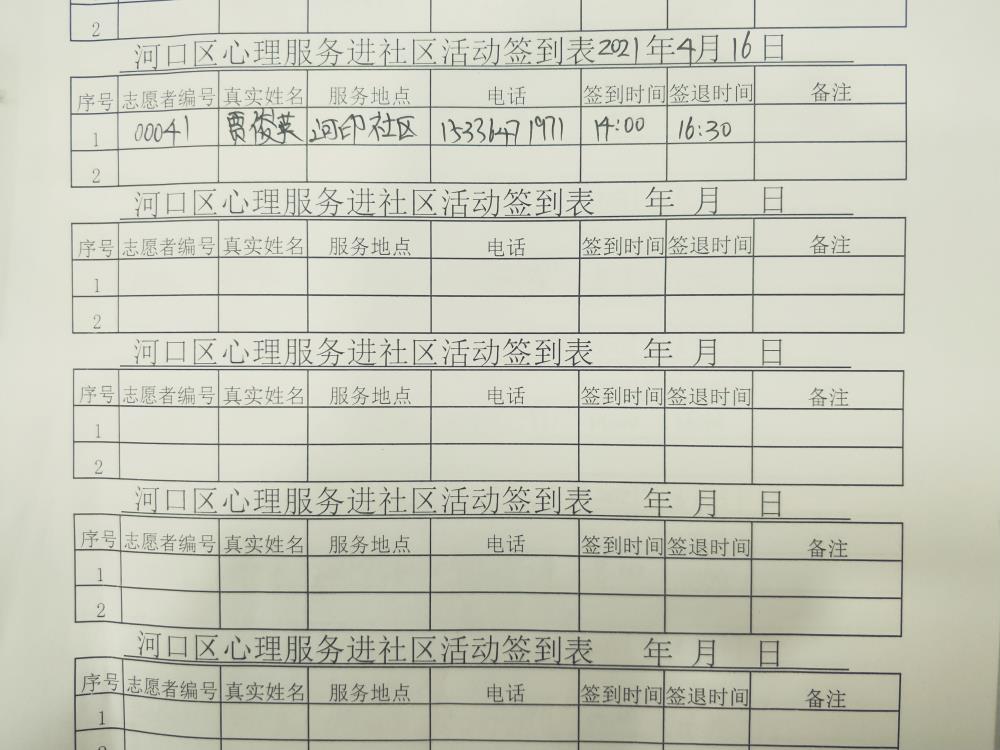 2
河口区心理服务进社区活动签到表2021年4月16日
序号 志愿者编号 真实姓名 服务地点 电话 签到时间 签退时间 备注
1 00041 贾俊英 河印社区 15336471971 14:00 16:30
2
河口区心理服务进社区活动签到表 年 月 日
序号 志愿者编号 真实姓名 服务地点 电话 签到时间 签退时间 备注
1
2
河口区心理服务进社区活动签到表 年 月 日
序号 志愿者编号 真实姓名 服务地点 电话 签到时间 签退时间 备注
1
2
河口区心理服务进社区活动签到表 年 月 日
序号 志愿者编号 真实姓名 服务地点 电话 签到时间 签退时间 备注
1
2
河口区心理服务进社区活动签到表 年 月 日
序号 志愿者编号 真实姓名 服务地点 电话 签到时间 签退时间 备注
1